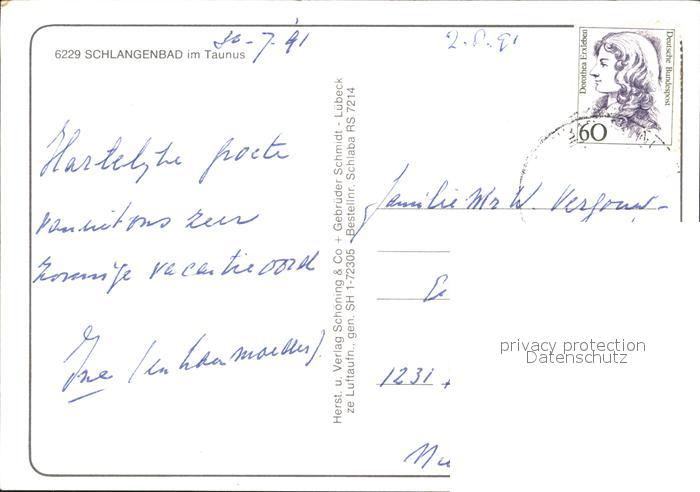 6229 SCHLANGENBAD im Taunus
30-7-'91
Hartelyke groete
vanuit ons zeer
zonnige vacantieoord
Ine (en haar moeder).
Herst. u. Verlag Schöning & Co + Gebrüder Schmidt - Lübeck
ze Luftaufn., gen. SH 1-72305 Bestellnr. Schlaba RS 7214
2.8.91
Dorothea Erxleben
Deutsche Bundespost
60
familie Mr W.
1231
privacy protection
Datenschutz